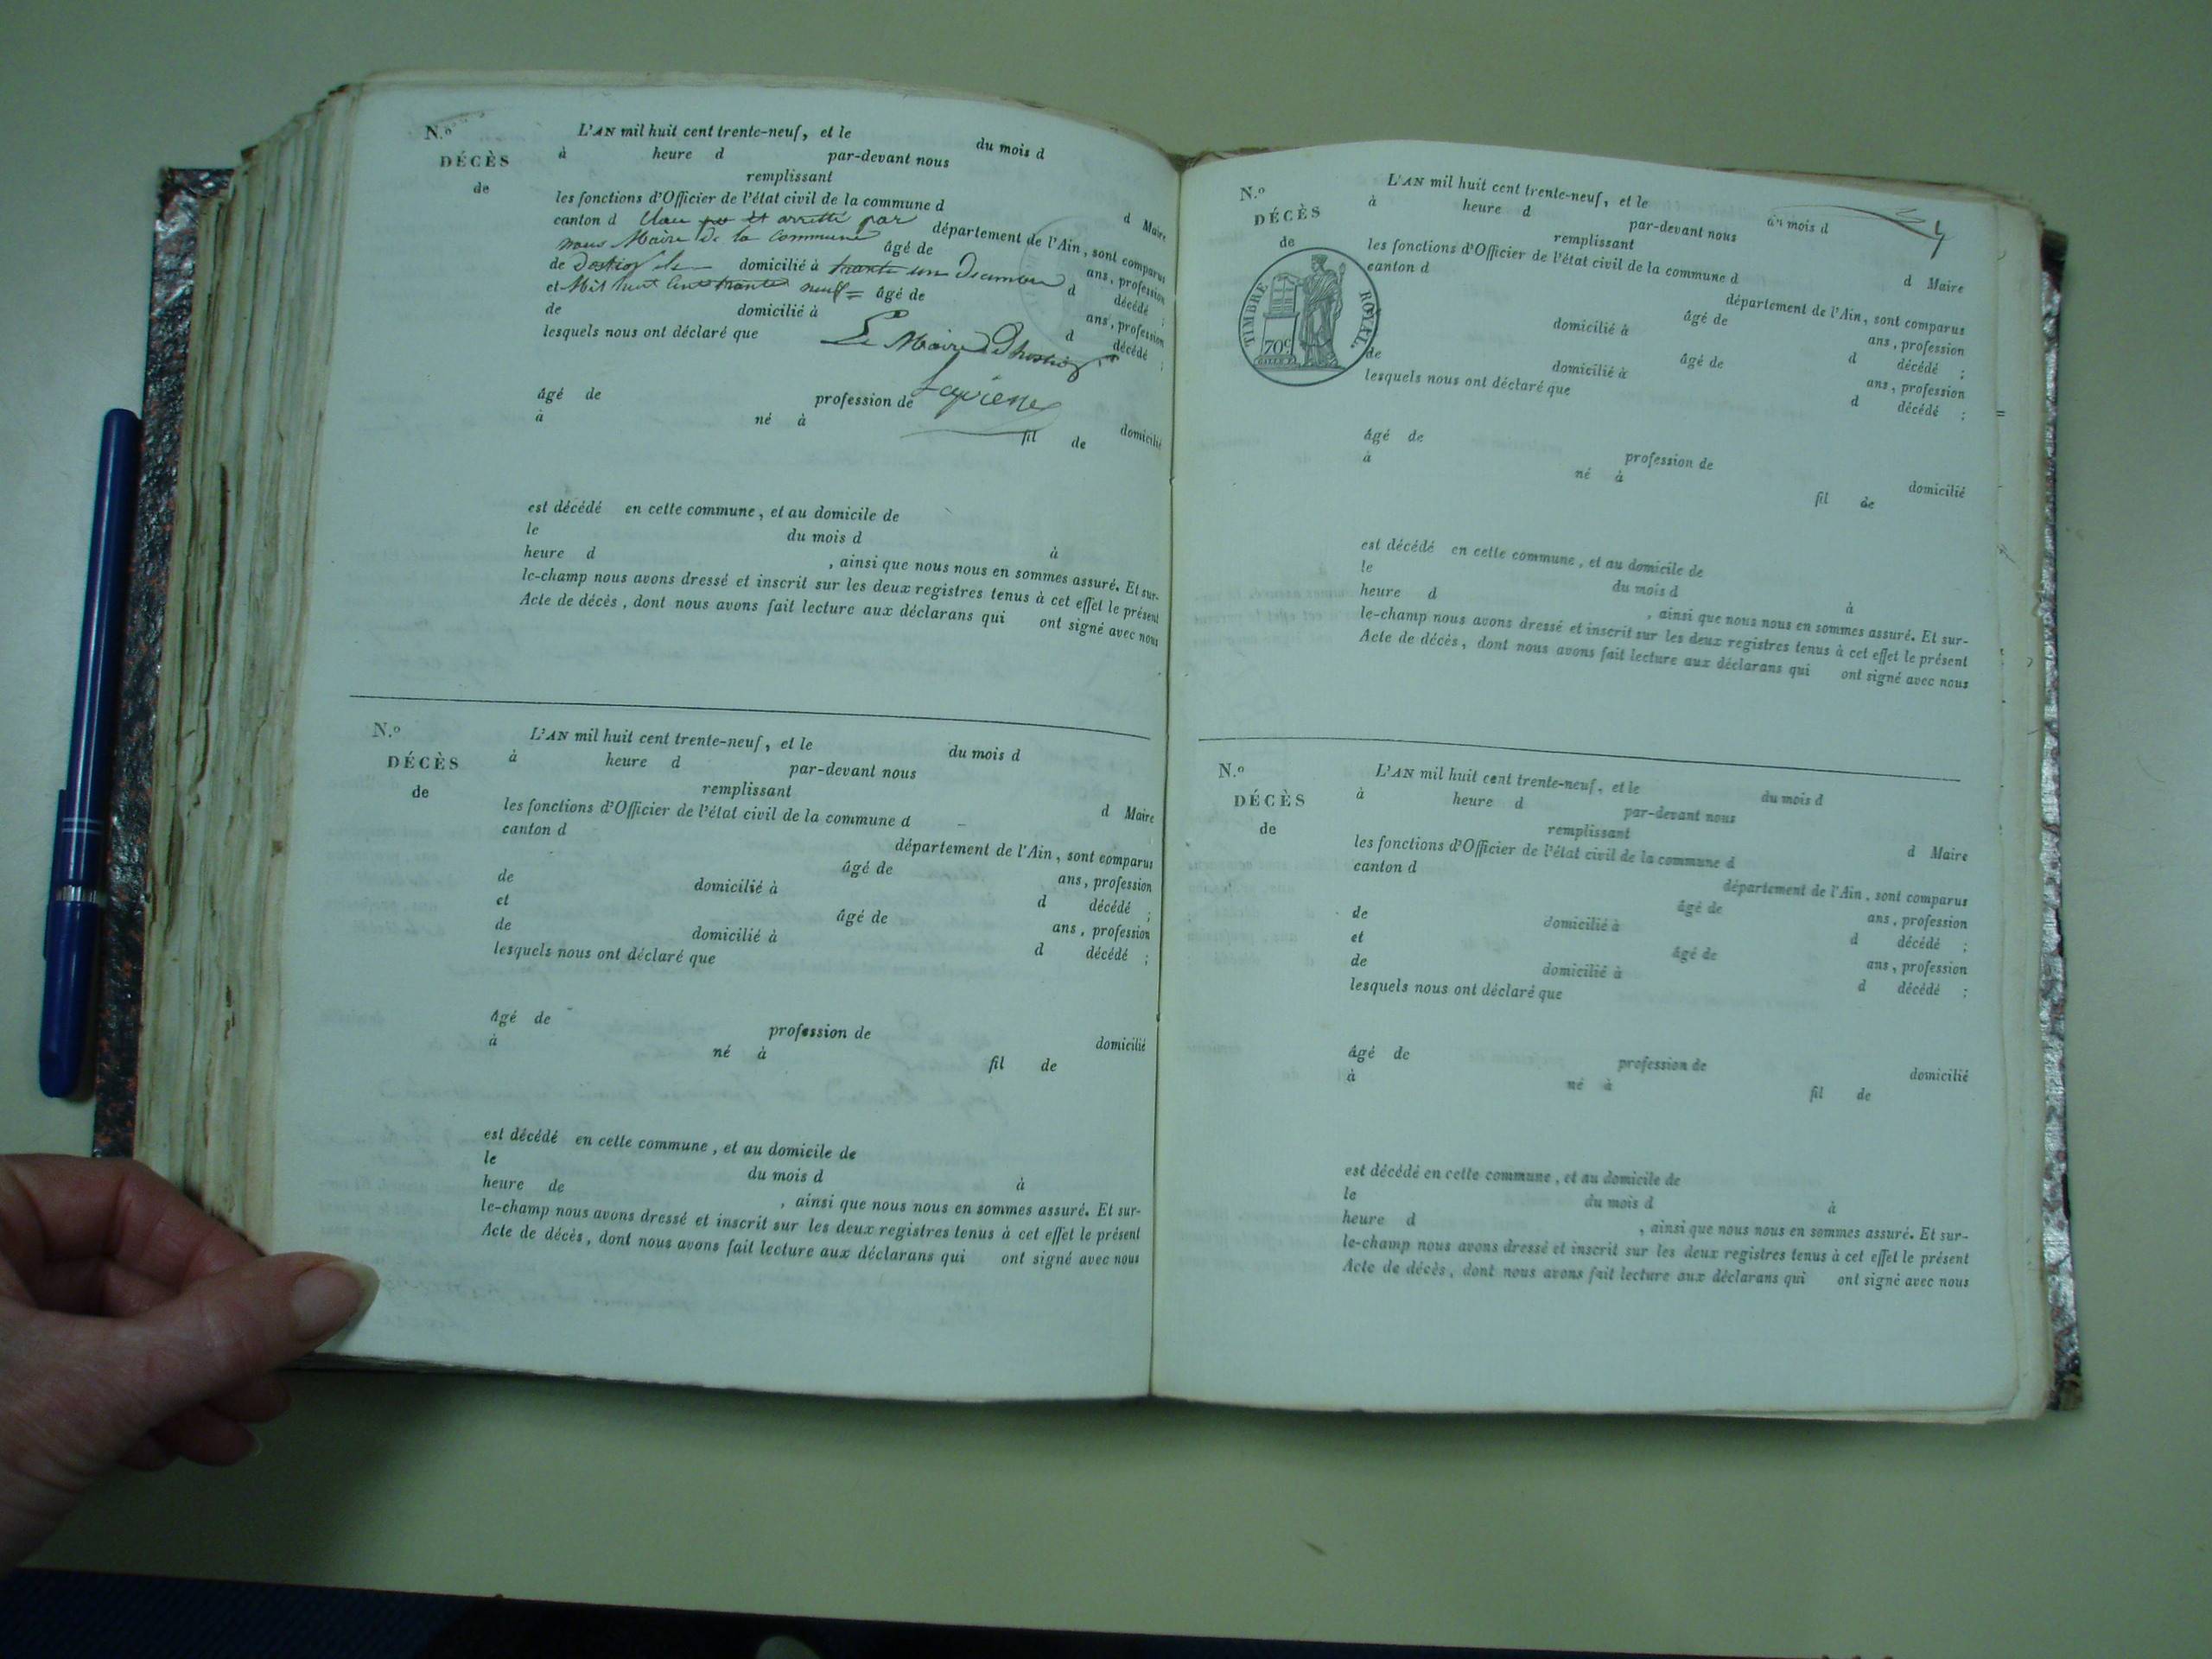 N.º
DÉCÈS
de
L'AN mil huit cent trente-neuf, et le du mois d
à heure d par-devant nous
remplissant d Maire
les fonctions d'Officier de l'état civil de la commune d
canton d Clau et arretté par département de l'Ain, sont comparus
nous Maire de la Commune âgé de ans, profession
de domicilié à trante un Decembre d décédé ;
et Mil huit Cent trante neuf = âgé de ans, profession
de domicilié à d décédé ;
lesquels nous ont déclaré que Le Maire Dhostiaz
âgé de profession de domicilié
à né à fil de
est décédé en cette commune, et au domicile de
le du mois d à
heure d , ainsi que nous nous en sommes assuré. Et sur-
le-champ nous avons dressé et inscrit sur les deux registres tenus à cet effet le présent
Acte de décès, dont nous avons fait lecture aux déclarans qui ont signé avec nous
N.º
DÉCÈS
de
L'AN mil huit cent trente-neuf, et le du mois d
à heure d par-devant nous
remplissant d Maire
les fonctions d'Officier de l'état civil de la commune d
canton d département de l'Ain, sont comparus
âgé de ans, profession
de domicilié à d décédé ;
et âgé de ans, profession
de domicilié à d décédé ;
lesquels nous ont déclaré que
âgé de profession de domicilié
à né à fil de
est décédé en cette commune, et au domicile de
le du mois d à
heure de , ainsi que nous nous en sommes assuré. Et sur-
le-champ nous avons dressé et inscrit sur les deux registres tenus à cet effet le présent
Acte de décès, dont nous avons fait lecture aux déclarans qui ont signé avec nous
N.º
DÉCÈS
de
TIMBRE ROYAL.
70c
L'AN mil huit cent trente-neuf, et le du mois d
à heure d par-devant nous
remplissant d Maire
les fonctions d'Officier de l'état civil de la commune d
canton d département de l'Ain, sont comparus
âgé de ans, profession
domicilié à d décédé ;
âgé de ans, profession
de domicilié à d décédé ;
lesquels nous ont déclaré que
âgé de profession de domicilié
à né à fil de
est décédé en cette commune, et au domicile de
le du mois d à
heure d , ainsi que nous nous en sommes assuré. Et sur-
le-champ nous avons dressé et inscrit sur les deux registres tenus à cet effet le présent
Acte de décès, dont nous avons fait lecture aux déclarans qui ont signé avec nous
N.º
DÉCÈS
de
L'AN mil huit cent trente-neuf, et le du mois d
à heure d par-devant nous
remplissant d Maire
les fonctions d'Officier de l'état civil de la commune d
canton d département de l'Ain, sont comparus
âgé de ans, profession
de domicilié à d décédé ;
et âgé de ans, profession
de domicilié à d décédé ;
lesquels nous ont déclaré que
âgé de profession de domicilié
à né à fil de
est décédé en cette commune, et au domicile de
le du mois d à
heure d , ainsi que nous nous en sommes assuré. Et sur-
le-champ nous avons dressé et inscrit sur les deux registres tenus à cet effet le présent
Acte de décès, dont nous avons fait lecture aux déclarans qui ont signé avec nous